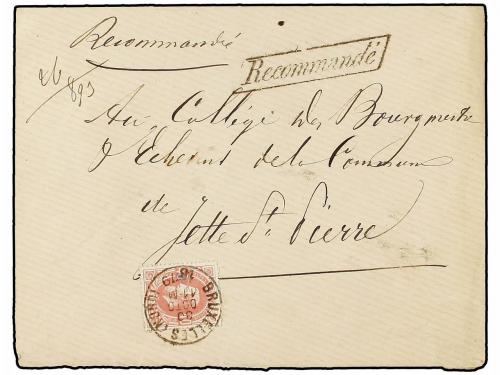 Recommandé
Recommandé
N° 893
Au Collége des Bourgmestre
& Echevins de la Commune
de
Jette St. Pierre
BRUXELLES (NORD)
1879